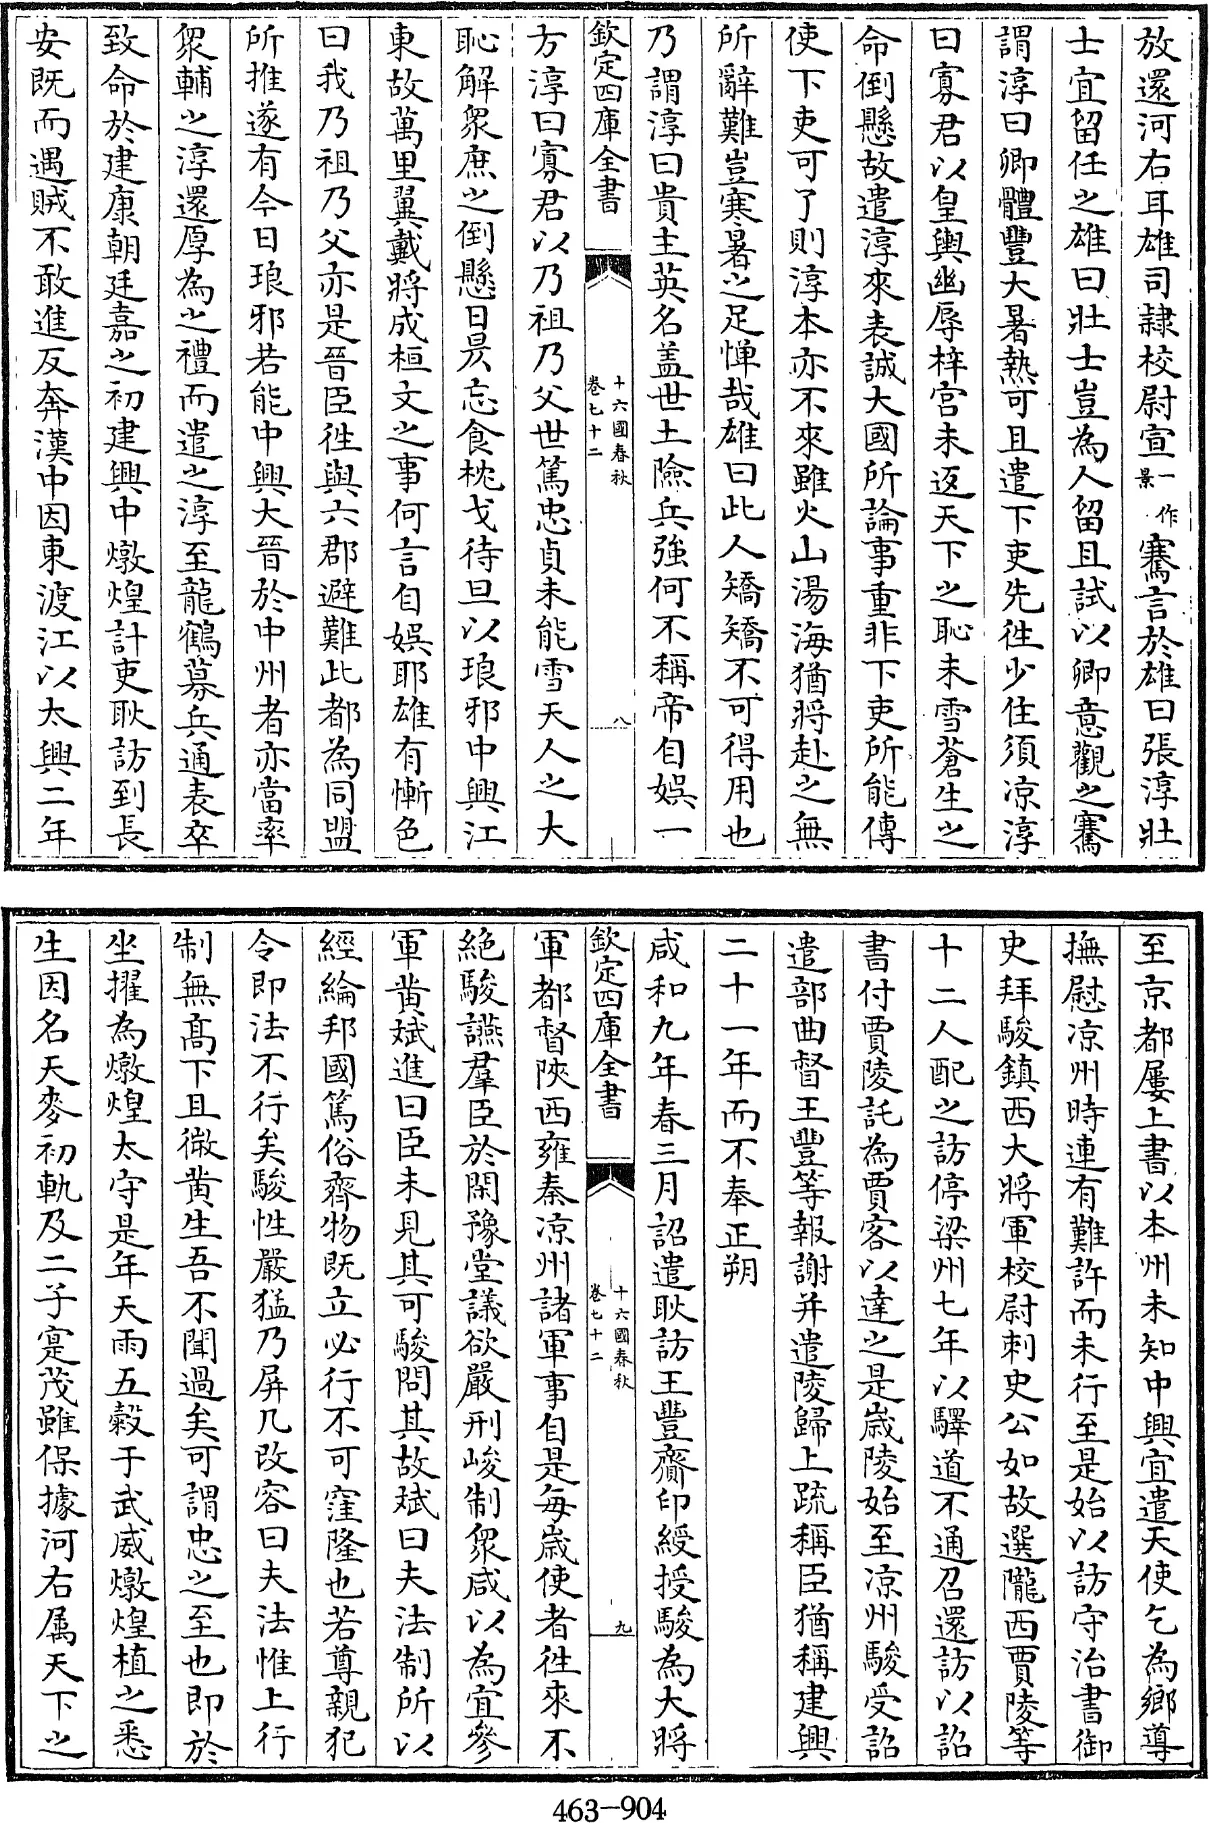 放還河右耳雄司隷校尉宣一作景騫言於雄曰張淳壯
士宜留任之雄曰壯士豈為人留且試以卿意觀之騫
謂淳曰卿體豐大暑熱可且遣下吏先徃少住須凉淳
曰寡君以皇輿幽辱梓宫未返天下之恥未雪蒼生之
命倒懸故遣淳來表誠大國所論事重非下吏所能傳
使下吏可了則淳本亦不來雖火山湯海猶將赴之無
所辭難豈寒暑之足憚哉雄曰此人矯矯不可得用也
乃謂淳曰貴主英名盖世土險兵強何不稱帝自娱一
欽定四庫全書
十六國春秋
卷七十二
八
方淳曰寡君以乃祖乃父世篤忠貞未能雪天人之大
恥解衆庶之倒懸日昃忘食枕戈待旦以琅邪中興江
東故萬里翼戴將成桓文之事何言自娱耶雄有慚色
曰我乃祖乃父亦是晉臣徃與六郡避難此都為同盟
所推遂有今日琅邪若能中興大晉於中州者亦當率
衆輔之淳還厚為之禮而遣之淳至龍鶴募兵通表卒
致命於建康朝廷嘉之初建興中燉煌計吏耿訪到長
安既而遇賊不敢進反奔漢中因東渡江以太興二年
至京都屢上書以本州未知中興宜遣天使乞為鄉導
撫慰凉州時連有難許而未行至是始以訪守治書御
史拜駿鎮西大將軍校尉刺史公如故選隴西賈陵等
十二人配之訪停梁州七年以驛道不通召還訪以詔
書付賈陵託為賈客以達之是歲陵始至凉州駿受詔
遣部曲督王豐等報謝并遣陵歸上疏稱臣猶稱建興
二十一年而不奉正朔
咸和九年春三月詔遣耿訪王豐齎印綬授駿為大將
欽定四庫全書
十六國春秋
卷七十二
九
軍都督陜西雍秦凉州諸軍事自是每歲使者徃來不
絶駿讌羣臣於閑豫堂議欲嚴刑峻制衆咸以為宜參
軍黄斌進曰臣未見其可駿問其故斌曰夫法制所以
經綸邦國篤俗齊物既立必行不可窪隆也若尊親犯
令即法不行矣駿性嚴猛乃屏几改容曰夫法惟上行
制無高下且微黄生吾不聞過矣可謂忠之至也即於
坐擢為燉煌太守是年天雨五穀于武威燉煌植之悉
生因名天麥初軌及二子寔茂雖保據河右属天下之
463-904